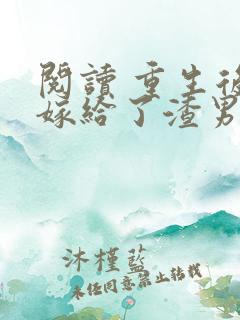 閱讀 重生後
嫁給了渣男
沐槿藍
未經同意禁止轉載